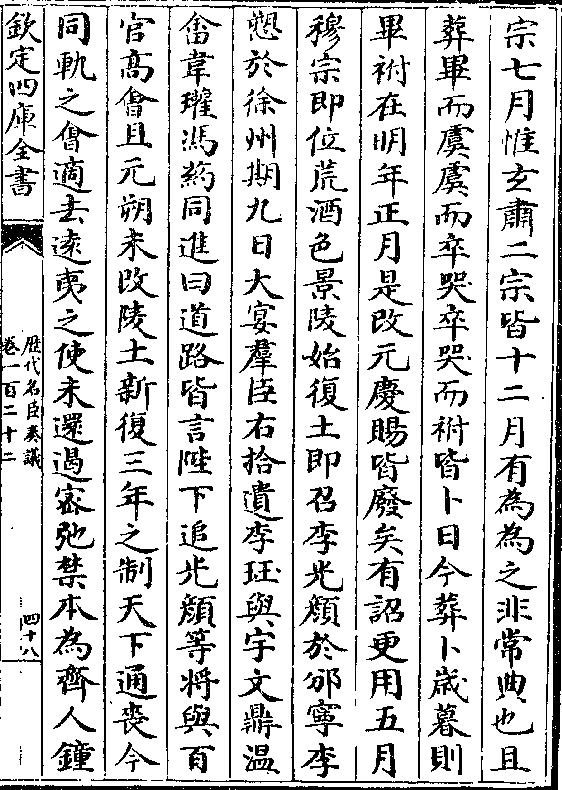 宗七月惟玄肅二宗皆十二月有為為之非常典也且
葬畢而虞虞而卒哭卒哭而祔皆卜日今葬卜歲暮則
畢祔在明年正月是改元慶賜皆廢矣有詔更用五月
穆宗即位荒酒色景陵始復土即召李光顔於邠寧李
愬於徐州期九日大宴羣臣右拾遺李珏與宇文鼎温
畬韋瓘馮葯同進曰道路皆言陛下追光顔等將與百
官高㑹且元朔未改陵土新復三年之制天下通喪今
同軌之㑹適去逺夷之使未還遏密弛禁本為齊人鐘
欽定四庫全書
歴代名臣奏議
卷一百二十二
四十八